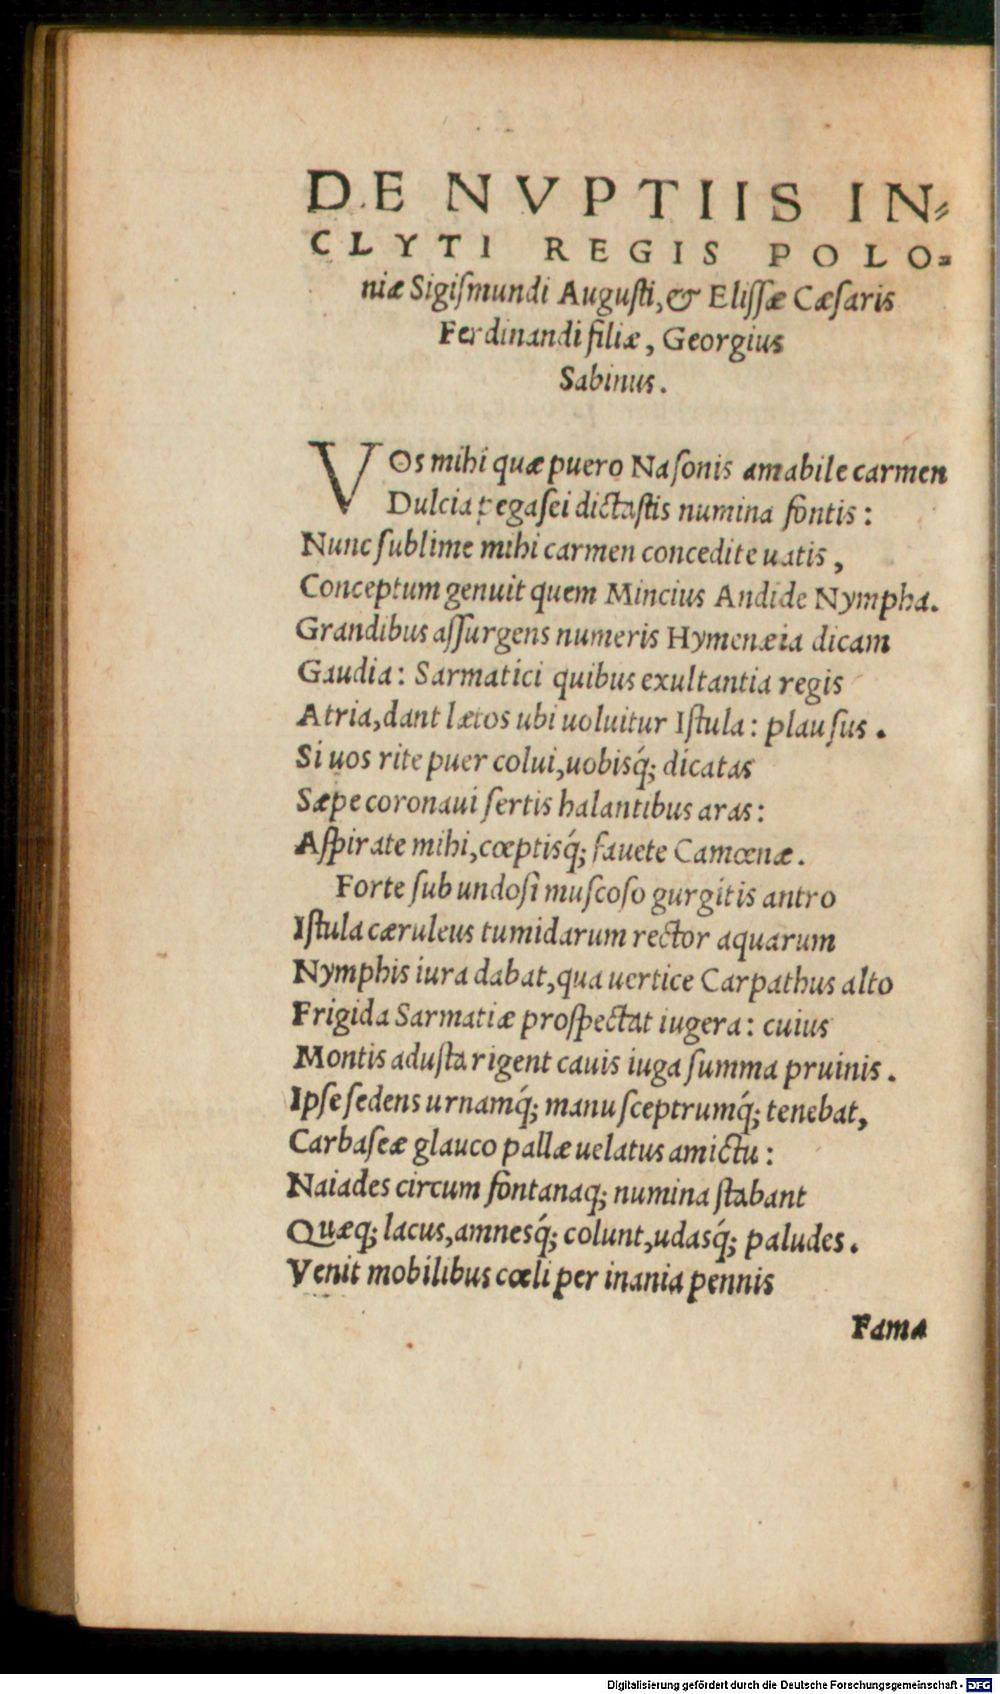 DE NVPTIIS IN⸗
CLYTI REGIS POLO⸗
niæ Sigiſmundi Auguſti, & Eliſſæ Cæſaris
Ferdinandi filiæ, Georgius
Sabinus.
VOs mihi quæ puero Naſonis amabile carmen
Dulcia pegaſei dictaſtis numina fontis:
Nunc ſublime mihi carmen concedite uatis,
Conceptum genuit quem Mincius Andide Nympha.
Grandibus aſſurgens numeris Hymenæia dicam
Gaudia: Sarmatici quibus exultantia regis
Atria, dant lætos ubi uoluitur Iſtula: plauſus.
Si uos rite puer colui, uobisq́; dicatas
Sæpe coronaui ſertis halantibus aras:
Aſpirate mihi, cœptisq́; fauete Camœnæ.
Forte ſub undoſi muſcoſo gurgitis antro
Iſtula cæruleus tumidarum rector aquarum
Nymphis iura dabat, qua uertice Carpathus alto
Frigida Sarmatiæ proſpectat iugera: cuius
Montis aduſta rigent cauis iuga ſumma pruinis.
Ipſe ſedens urnamq́; manu ſceptrumq́; tenebat,
Carbaſeæ glauco pallæ uelatus amictu:
Naiades circum fontanaq; numina ſtabant
Quæq; lacus, amnesq́; colunt, udasq́; paludes.
Venit mobilibus cœli per inania pennis
Fama
Digitalisierung gefördert durch die Deutsche Forschungsgemeinschaft - DFG